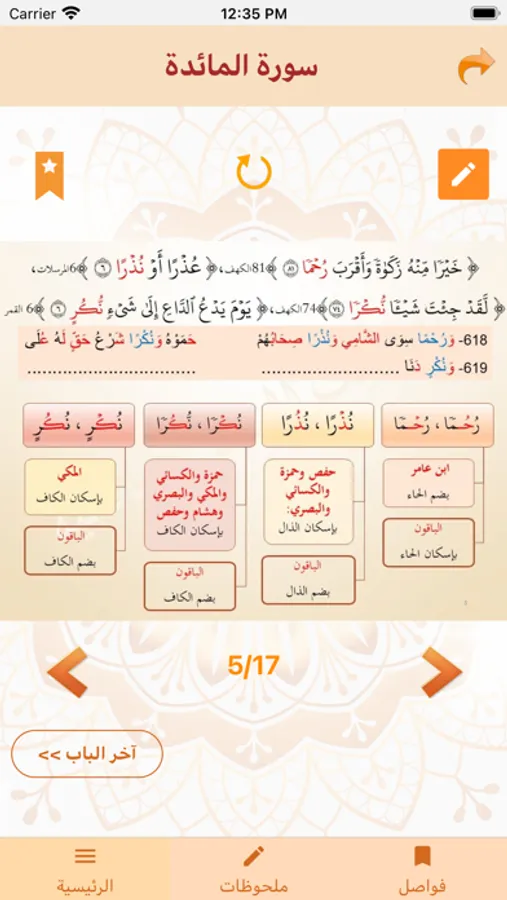 Carrier 12:35 PM
سورة المائدة
﴿ خَيْرًا مِّنْهُ زَكَوٰةً وَأَقْرَبَ رُحْمًا ٨١ ﴾81الكهف، ﴿ عُذْرًا أَوْ نُذْرًا ٦ ﴾6المرسلات،
﴿ لَّقَدْ جِئْتَ شَيْـًٔا نُّكْرًا ٧٤ ﴾74الكهف، ﴿ يَوْمَ يَدْعُ ٱلدَّاعِ إِلَىٰ شَىْءٍ نُّكُرٍ ٦ ﴾6 القمر
618- وَرُحْمًا سِوَى الشَّامِي وَنُذْرًا صِحَابُهُمْ حَمَوْهُ وَنُكْرًا شَرْعُ حَقٍّ لَهُ عُلَى
619- وَنُكْرٍ دَنَا ................................ ................................
رُحُمًا ، رُحْمًا
نُذْرًا ، نُذُرًا
نُكْرًا ، نُّكُرًا
نُكْرٍ ، نُكُرٍ
ابن عامر
بضم الحاء
الباقون
بإسكان الحاء
حفص وحمزة
والكسائي
والبصري:
بإسكان الذال
الباقون
بضم الذال
حمزة والكسائي
والمكي والبصري
وهشام وحفص
بإسكان الكاف
الباقون
بضم الكاف
المكي
بإسكان الكاف
الباقون
بضم الكاف
5/17
آخر الباب >>
فواصل
ملحوظات
الرئيسية